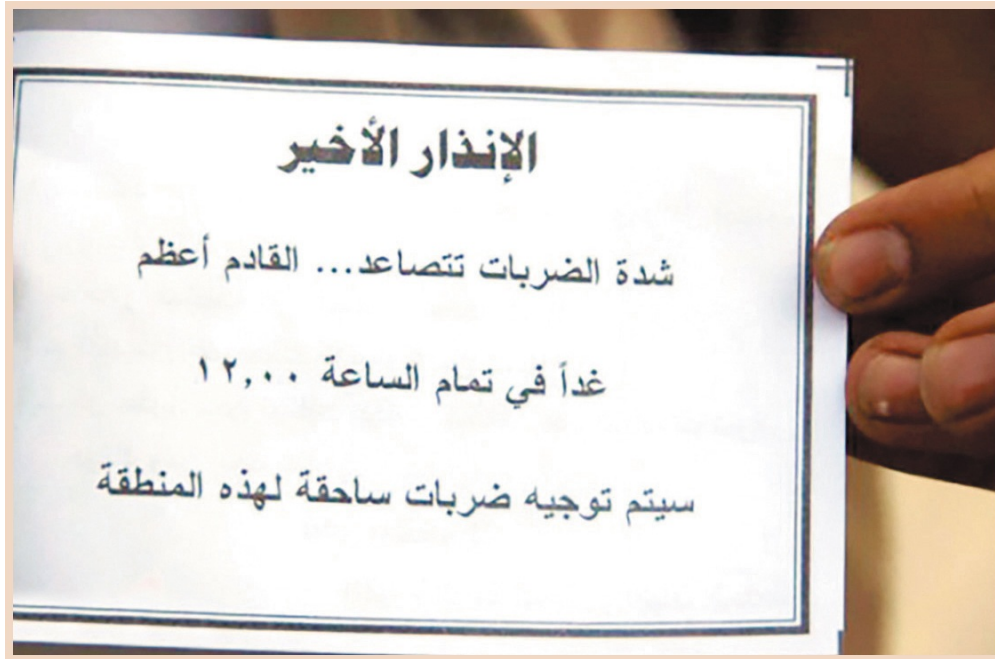 الإنذار الأخير
شدة الضربات تتصاعد... القادم أعظم
غداً في تمام الساعة ١٢,٠٠
سيتم توجيه ضربات ساحقة لهذه المنطقة